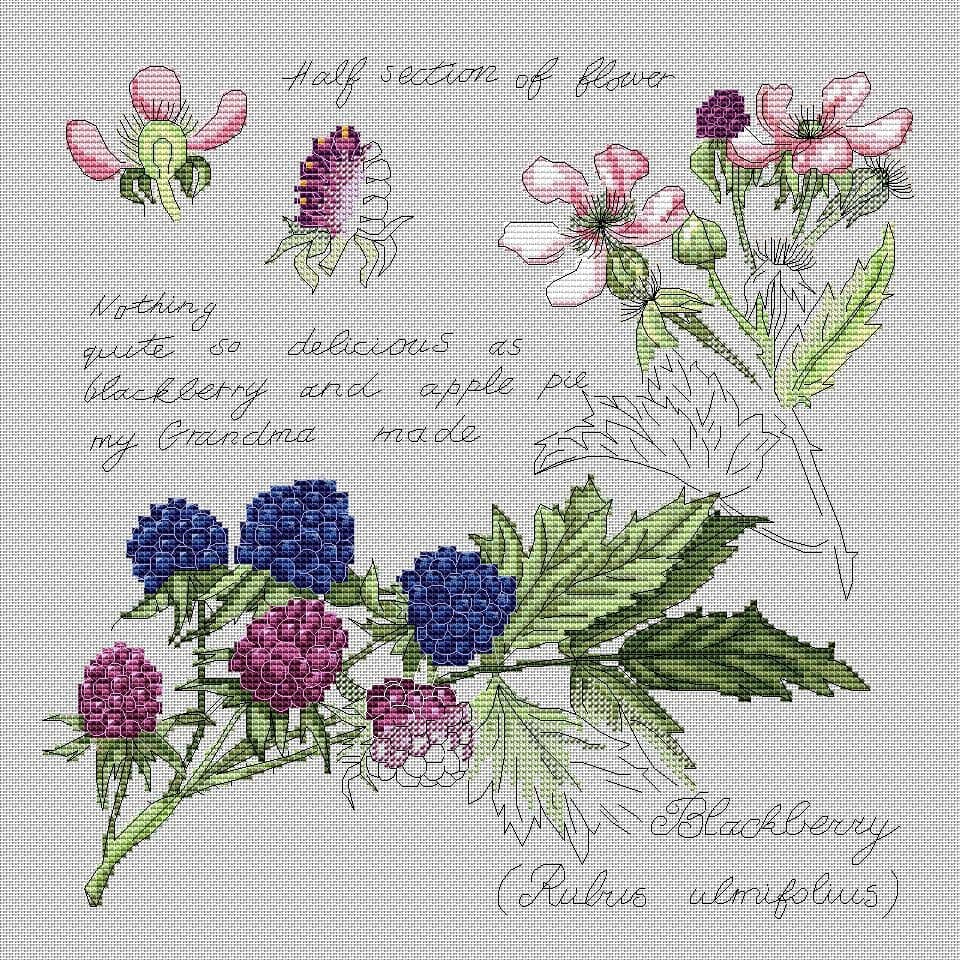 Half section of flower
Nothing
quite so delicious as
blackberry and apple pie
my Grandma made
Blackberry
(Rubus ulmifolius)